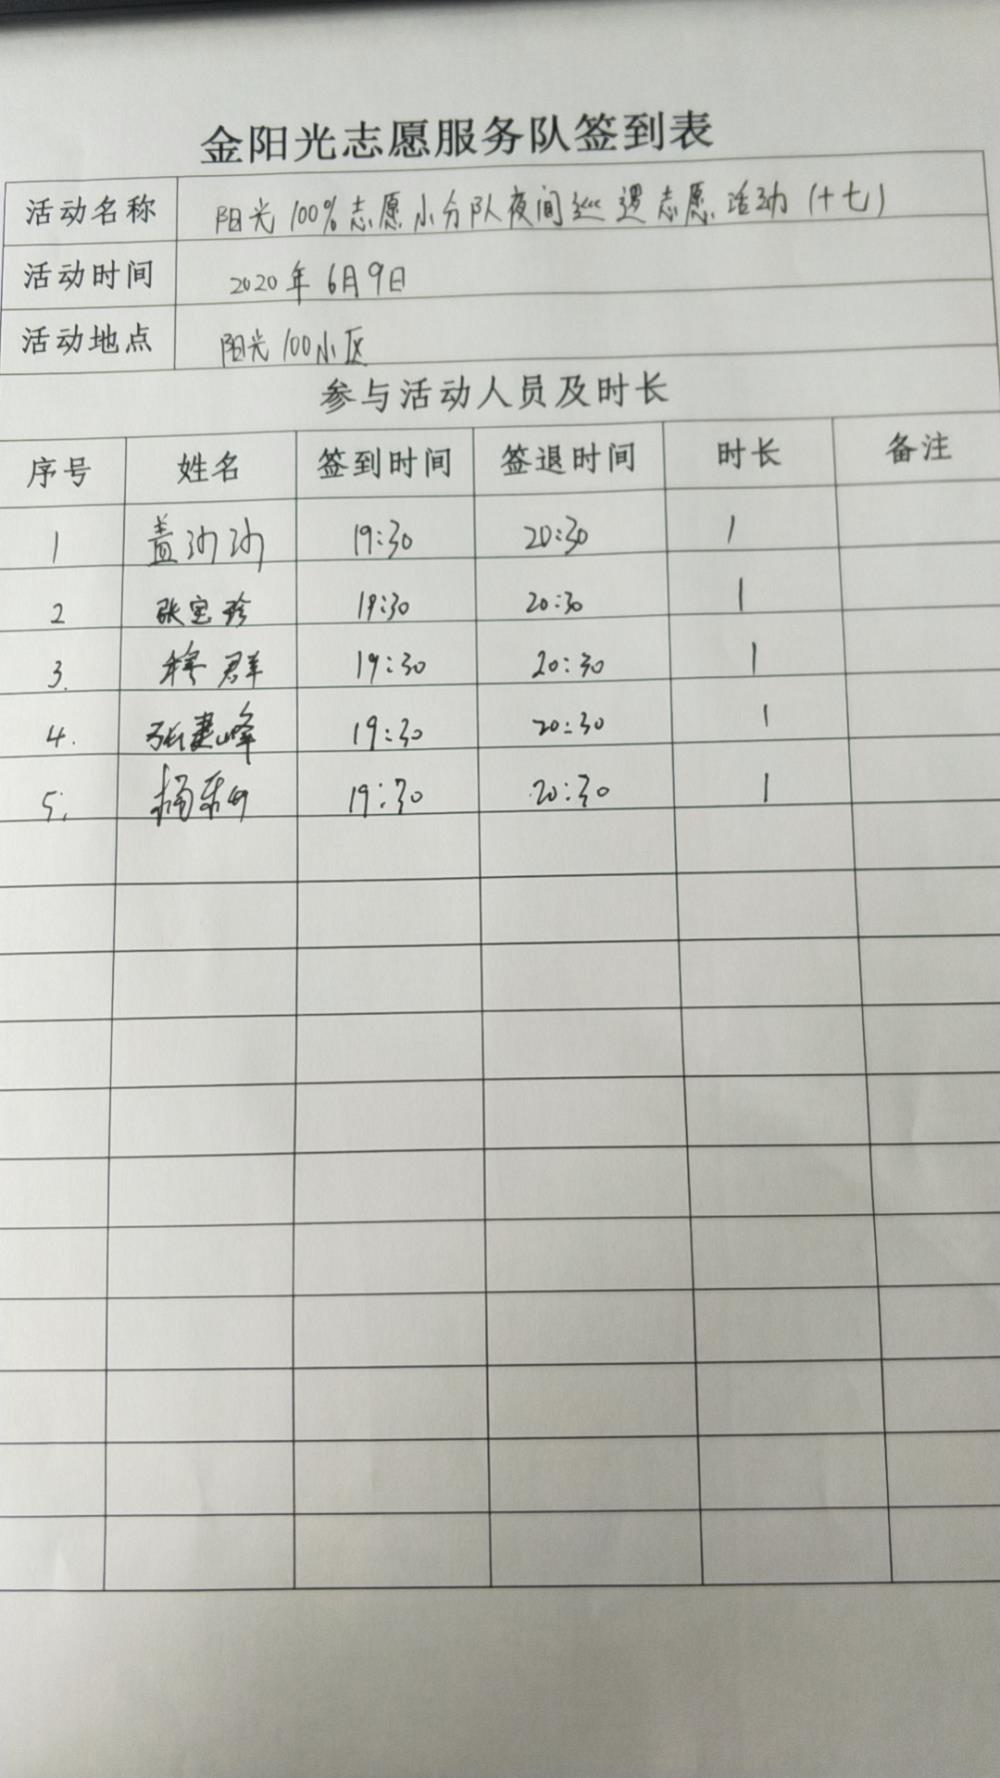 金阳光志愿服务队签到表
活动名称 阳光100%志愿小分队夜间巡逻志愿活动(十七)
活动时间 2020年6月9日
活动地点 阳光100小区
参与活动人员及时长
序号 姓名 签到时间 签退时间 时长 备注
1 盖 19:30 20:30 1
2 张宝珍 19:30 20:30 1
3. 穆群 19:30 20:30 1
4. 张建峰 19:30 20:30 1
5. 杨 19:30 20:30 1